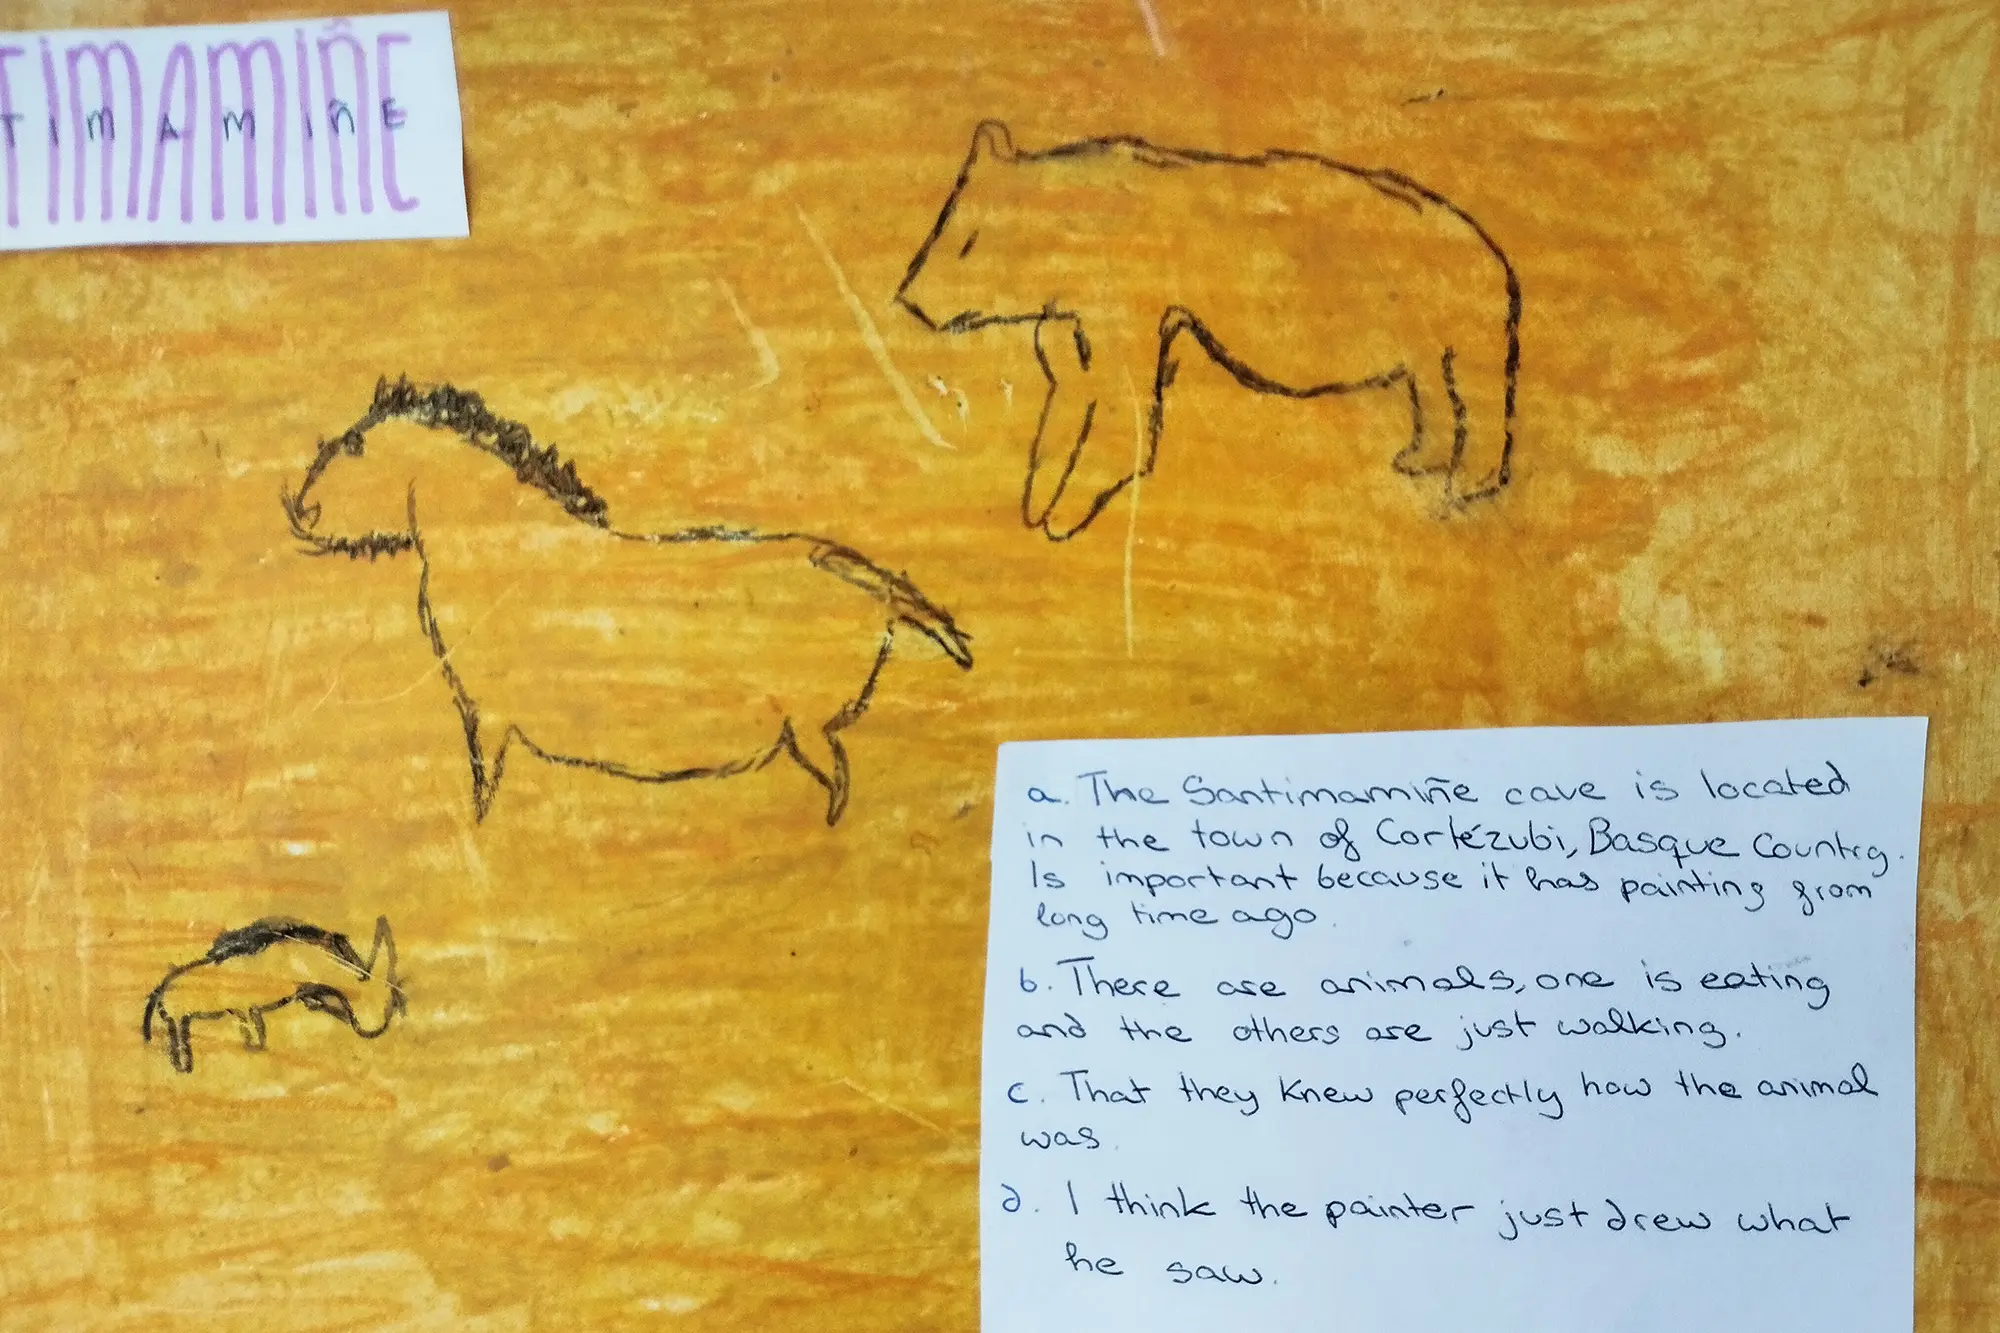 TIMAMIÑE
TIMAMIÑE
a. The Santimamiñe cave is located
in the town of Cortézubi, Basque Country.
Is important because it has painting from
long time ago.
b. There are animals, one is eating
and the others are just walking.
c. That they knew perfectly how the animal
was.
d. I think the painter just drew what
he saw.